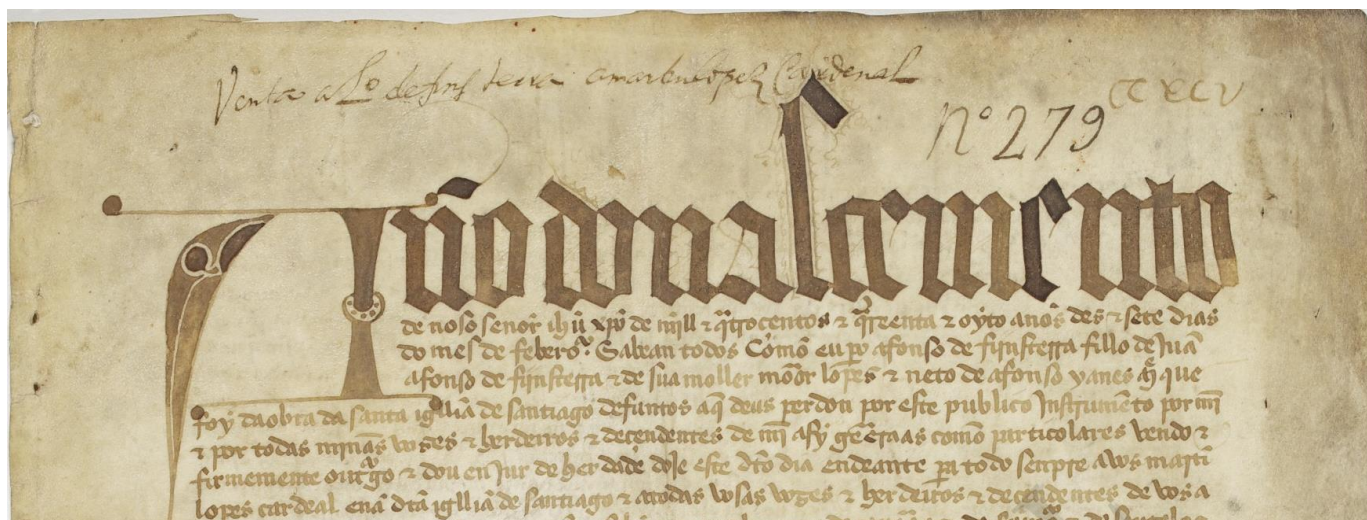 Venta a Lo de finsterra a martin lopez Cardenal
CCXCV
No 279
Año do nascemento
de noso senor ihū xpō de mill & qtrocentos & qreenta & oyto anos des & sete dias
do mes de febero. Sabean todos Comō eu po afonso de finsterra fillo de Juā
afonso de finsterra & de sua moller moor lopes & neto de afonso yanes que
foy da obra da santa igllia de santiago defuntos aq deus perdon por este publico Instrumēto por mī
& por todas minas voses & herdeiros & decendentes de mī asy geeraas como particolares vendo &
firmemente outgo & dou en Jur de herdade doje este dto dia endeante pa todo senpre a vos martī
lopes cardeal enā dta igllia de santiago & a todas vosas vozes & herdeiros & decendentes de vos a